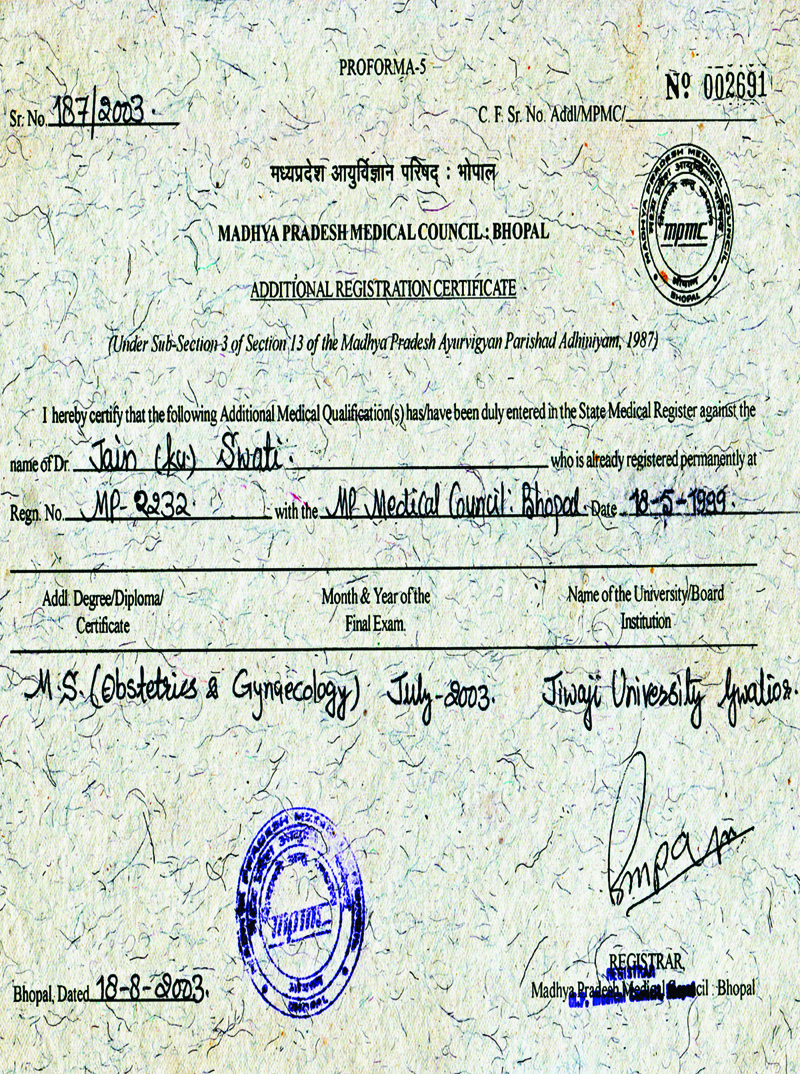 PROFORMA-5
Nº 002691
Sr. No. 187/2003.
C. F. Sr. No. Addl/MPMC/
मध्यप्रदेश आयुर्विज्ञान परिषद् : भोपाल
MADHYA PRADESH MEDICAL COUNCIL : BHOPAL
MADHYA PRADESH MEDICAL COUNCIL
mpmc
भोपाल
BHOPAL
ADDITIONAL REGISTRATION CERTIFICATE
(Under Sub-Section-3 of Section 13 of the Madhya Pradesh Ayurvigyan Parishad Adhiniyam, 1987)
I hereby certify that the following Additional Medical Qualification(s) has/have been duly entered in the State Medical Register against the
name of Dr. Jain (Ku.) Swati. who is already registered permanently at
Regn. No. MP-2232 with the MP Medical Council: Bhopal. Date 18-5-1999.
Addl. Degree/Diploma/ Month & Year of the Name of the University/Board
Certificate Final Exam. Institution
M.S. (Obstetrics & Gynaecology) July-2003. Jiwaji University Gwalior.
mpmc
REGISTRAR
REGISTRAR
Bhopal, Dated 18-8-2003.
Madhya Pradesh Medical Council : Bhopal